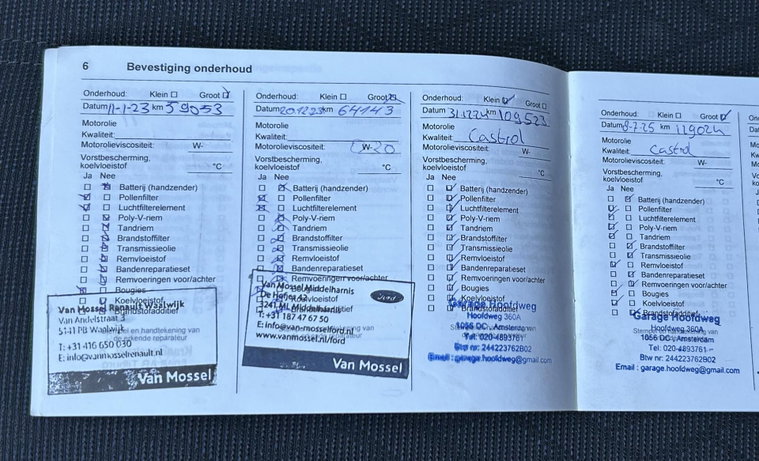 6 Bevestiging onderhoud
Onderhoud: Klein Groot
Datum 11-1-23 km 59053
Motorolie
Kwaliteit:
Motorolieviscositeit: W-
Vorstbescherming,
koelvloeistof °C
Ja Nee
Batterij (handzender)
Pollenfilter
Luchtfilterelement
Poly-V-riem
Tandriem
Brandstoffilter
Transmissieolie
Remvloeistof
Bandenreparatieset
Remvoeringen voor/achter
Bougies
Koelvloeistof
Brandstofadditief
Van Mossel Renault Waalwijk
Van Andelstraat 3
5141 PB Waalwijk
T: +31-416 650 030
E: info@vanmosselrenault.nl
Van Mossel
Onderhoud: Klein Groot
Datum 20.12.23 km 64143
Motorolie
Kwaliteit:
Motorolieviscositeit: W-20
Vorstbescherming,
koelvloeistof °C
Ja Nee
Batterij (handzender)
Pollenfilter
Luchtfilterelement
Poly-V-riem
Tandriem
Brandstoffilter
Transmissieolie
Remvloeistof
Bandenreparatieset
Remvoeringen voor/achter
Van Mossel Middelharnis
3241 ML Middelharnis
T: +31 187 47 67 50
E: info@van-mosselford.nl
www.vanmossel.nl/ford
Ford
Van Mossel
Onderhoud: Klein Groot
Datum 31.12.24 km 109523
Motorolie
Kwaliteit: Castrol
Motorolieviscositeit: W-
Vorstbescherming,
koelvloeistof °C
Ja Nee
Batterij (handzender)
Pollenfilter
Luchtfilterelement
Poly-V-riem
Tandriem
Brandstoffilter
Transmissieolie
Remvloeistof
Bandenreparatieset
Remvoeringen voor/achter
Bougies
Koelvloeistof
Brandstofadditief
Garage Hoofdweg
Hoofdweg 360A
1056 DC Amsterdam
Tel: 020-4893761
Btw nr: 244223762B02
Email : garage.hoofdweg@gmail.com
Onderhoud: Klein Groot
Datum 8-7-25 km 119024
Motorolie
Kwaliteit: Castrol
Motorolieviscositeit: W-
Vorstbescherming,
koelvloeistof °C
Ja Nee
Batterij (handzender)
Pollenfilter
Luchtfilterelement
Poly-V-riem
Tandriem
Brandstoffilter
Transmissieolie
Remvloeistof
Bandenreparatieset
Remvoeringen voor/achter
Bougies
Koelvloeistof
Brandstofadditief
Garage Hoofdweg
Hoofdweg 360A
1056 DC Amsterdam
Tel: 020-4893761
Btw nr: 244223762B02
Email : garage.hoofdweg@gmail.com